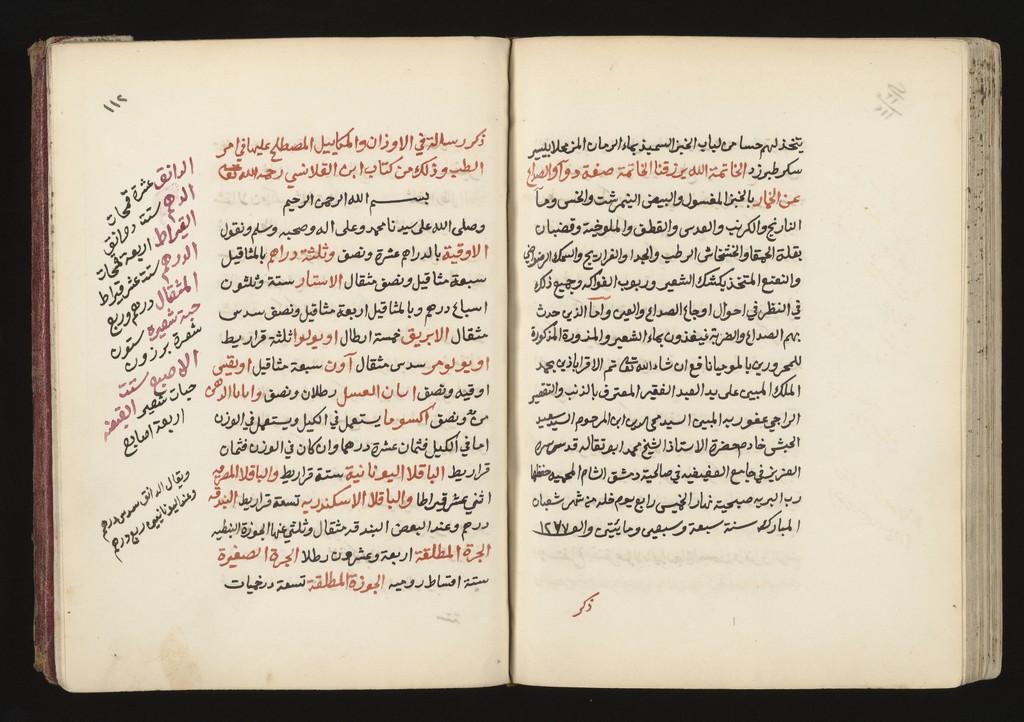 يتخذ لهم حسا من لباب الخبز السميذ بماء الرمان المز محلا بيسير
سكر طبرزد الخاتمة الله يرزقنا الخاتمة صفة دواء الصداع
عن الخمار بالخبز المغسول والبيض النيمرشت والخس وماء
النارنج والكرنب والعدس والقطف والملوخية وقضبان
بقلة الحمقا والخشخاش الرطب والجدا والفراريج والسمك الرضراضي
والنعنع المتخذ بكشك الشعير وربوب الفواكه وجميع ذلك
في النظر في احوال اوجاع الصداع والعين وأما الذين حدث
بهم الصداع والضربة فيغذون بماء الشعير والمزورة المذكورة
للمحرورين بالموميانافع ان شاء الله تعالى تم الاقراباذين بحمد
الملك المبين على يد العبد الفقير المعترف بالذنب والتقصير
الراجي عفو ربه المبين السيد محي الدين ابن المرحوم السيد عيد
الحبشي خادم حضرة الاستاذ الشيخ محمد ابو تقاله قدس سره
العزيز في جامع العفيفيه في صالحية دمشق الشام المحميه حفظها
رب البريه صبحية نهار الخميس رابع يوم خله من شهر شعبان
المبارك سنة سبعة وسبعين ومايتين والف ١٢٧٧
ذكر
١١٢
ذكر رسالة في الاوزان والمكاييل المصطلح عليها في امر
الطب وذلك من كتاب ابن القلانسي رحمه الله تعالى
بسم الله الرحمن الرحيم
وصلى الله على سيدنا محمد وعلى اله وصحبه وسلم ونقول
الاوقية بالدراهم عشرة ونصف وثلثة دراهم بالمثاقيل
سبعة مثاقيل ونصف مثقال الاستار ستة وثلثون
اسباع درهم وبالمثاقيل اربعة مثاقيل ونصف سدس
مثقال الابريق خمسة ارطال اوبولوا ثلثة قراريط
اوبولومر سدس مثقال آون سبعة مثاقيل اويقيس
اوقيه ونصف اسان العسل رطلان ونصف واباناالدهن
من ونصف اكسوما يستعمل في الكيل ويستعمل في الوزن
اما في الكيل فثمان عشرة درهما وان كان في الوزن فثمان
قراريط الباقلا اليونانية ستة قراريط والباقلا المصريه
اثني عشر قيراطا والباقلا الاسكندريه تسعة قراريط البندقه
درهم وعند البعض البندقه مثقال وثلثي عنها الجوزة النبطيه
الجرة المطلقة اربعة وعشرون رطلا الجرة الصغيرة
ستة اقساط روميه الجوزة المطلقة تسعة درخميات
الدانق عشرة قمحات
الدرهم ستة دوانق
القيراط اربعة قمحات
الدرهم ستة عشر قيراط
المثقال درهم وربع
حبة شعيرة ستون
شعرة برزون
الاصبع ستت
حبات شعير القبضه
اربعة اصابع
ويقال الدانق سدس درهم
وعند اليونانيين ربع درهم